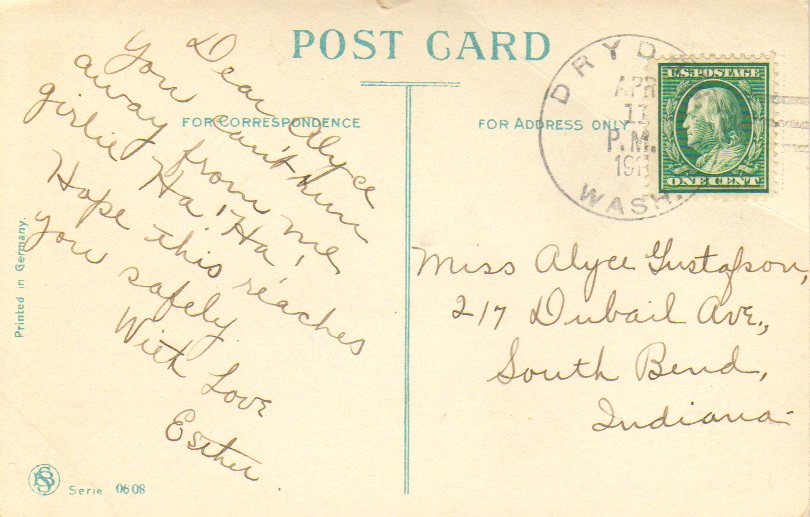 POST CARD
FOR CORRESPONDENCE
FOR ADDRESS ONLY
Dear Alyce
You can't run
away from me,
girlie Ha! Ha!
Hope this reaches
you safely.
With Love
Esther.
DRYD
APR
11
P.M.
191
WASH.
U.S. POSTAGE
ONE CENT
Miss Alyce Gustafson,
217 Dubail Ave.,
South Bend,
Indiana
Printed in Germany.
Serie 0608